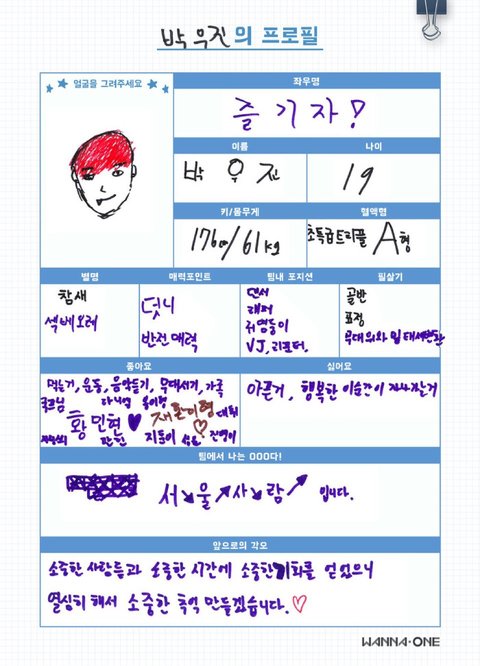 박우진의 프로필
얼굴을 그려주세요
좌우명
즐기자!
이름
나이
박우진
19
키/몸무게
혈액형
176cm/61kg
초특급트리플 A형
별명
매력포인트
팀내 포지션
필살기
참새
섹베오레
덧니
반전매력
댄서
래퍼
귀염둥이
VJ, 리포터.
골반
표정
무대 의와 일 태세변환
좋아요
싫어요
먹는거, 운동, 음악듣기, 무대서기, 가족
아픈거, 행복한 이순간이 지나가는거
황민현
재환이형
대휘
지훈이
성운
관역이
팀에서 나는 OOO다!
서↘울↗사↘람↗ 입니다.
앞으로의 각오
소중한 사람들과 소중한 시간에 소중한기회를 얻었으니
열심히 해서 소중한 추억 만들겠습니다.♡
WANNA·ONE